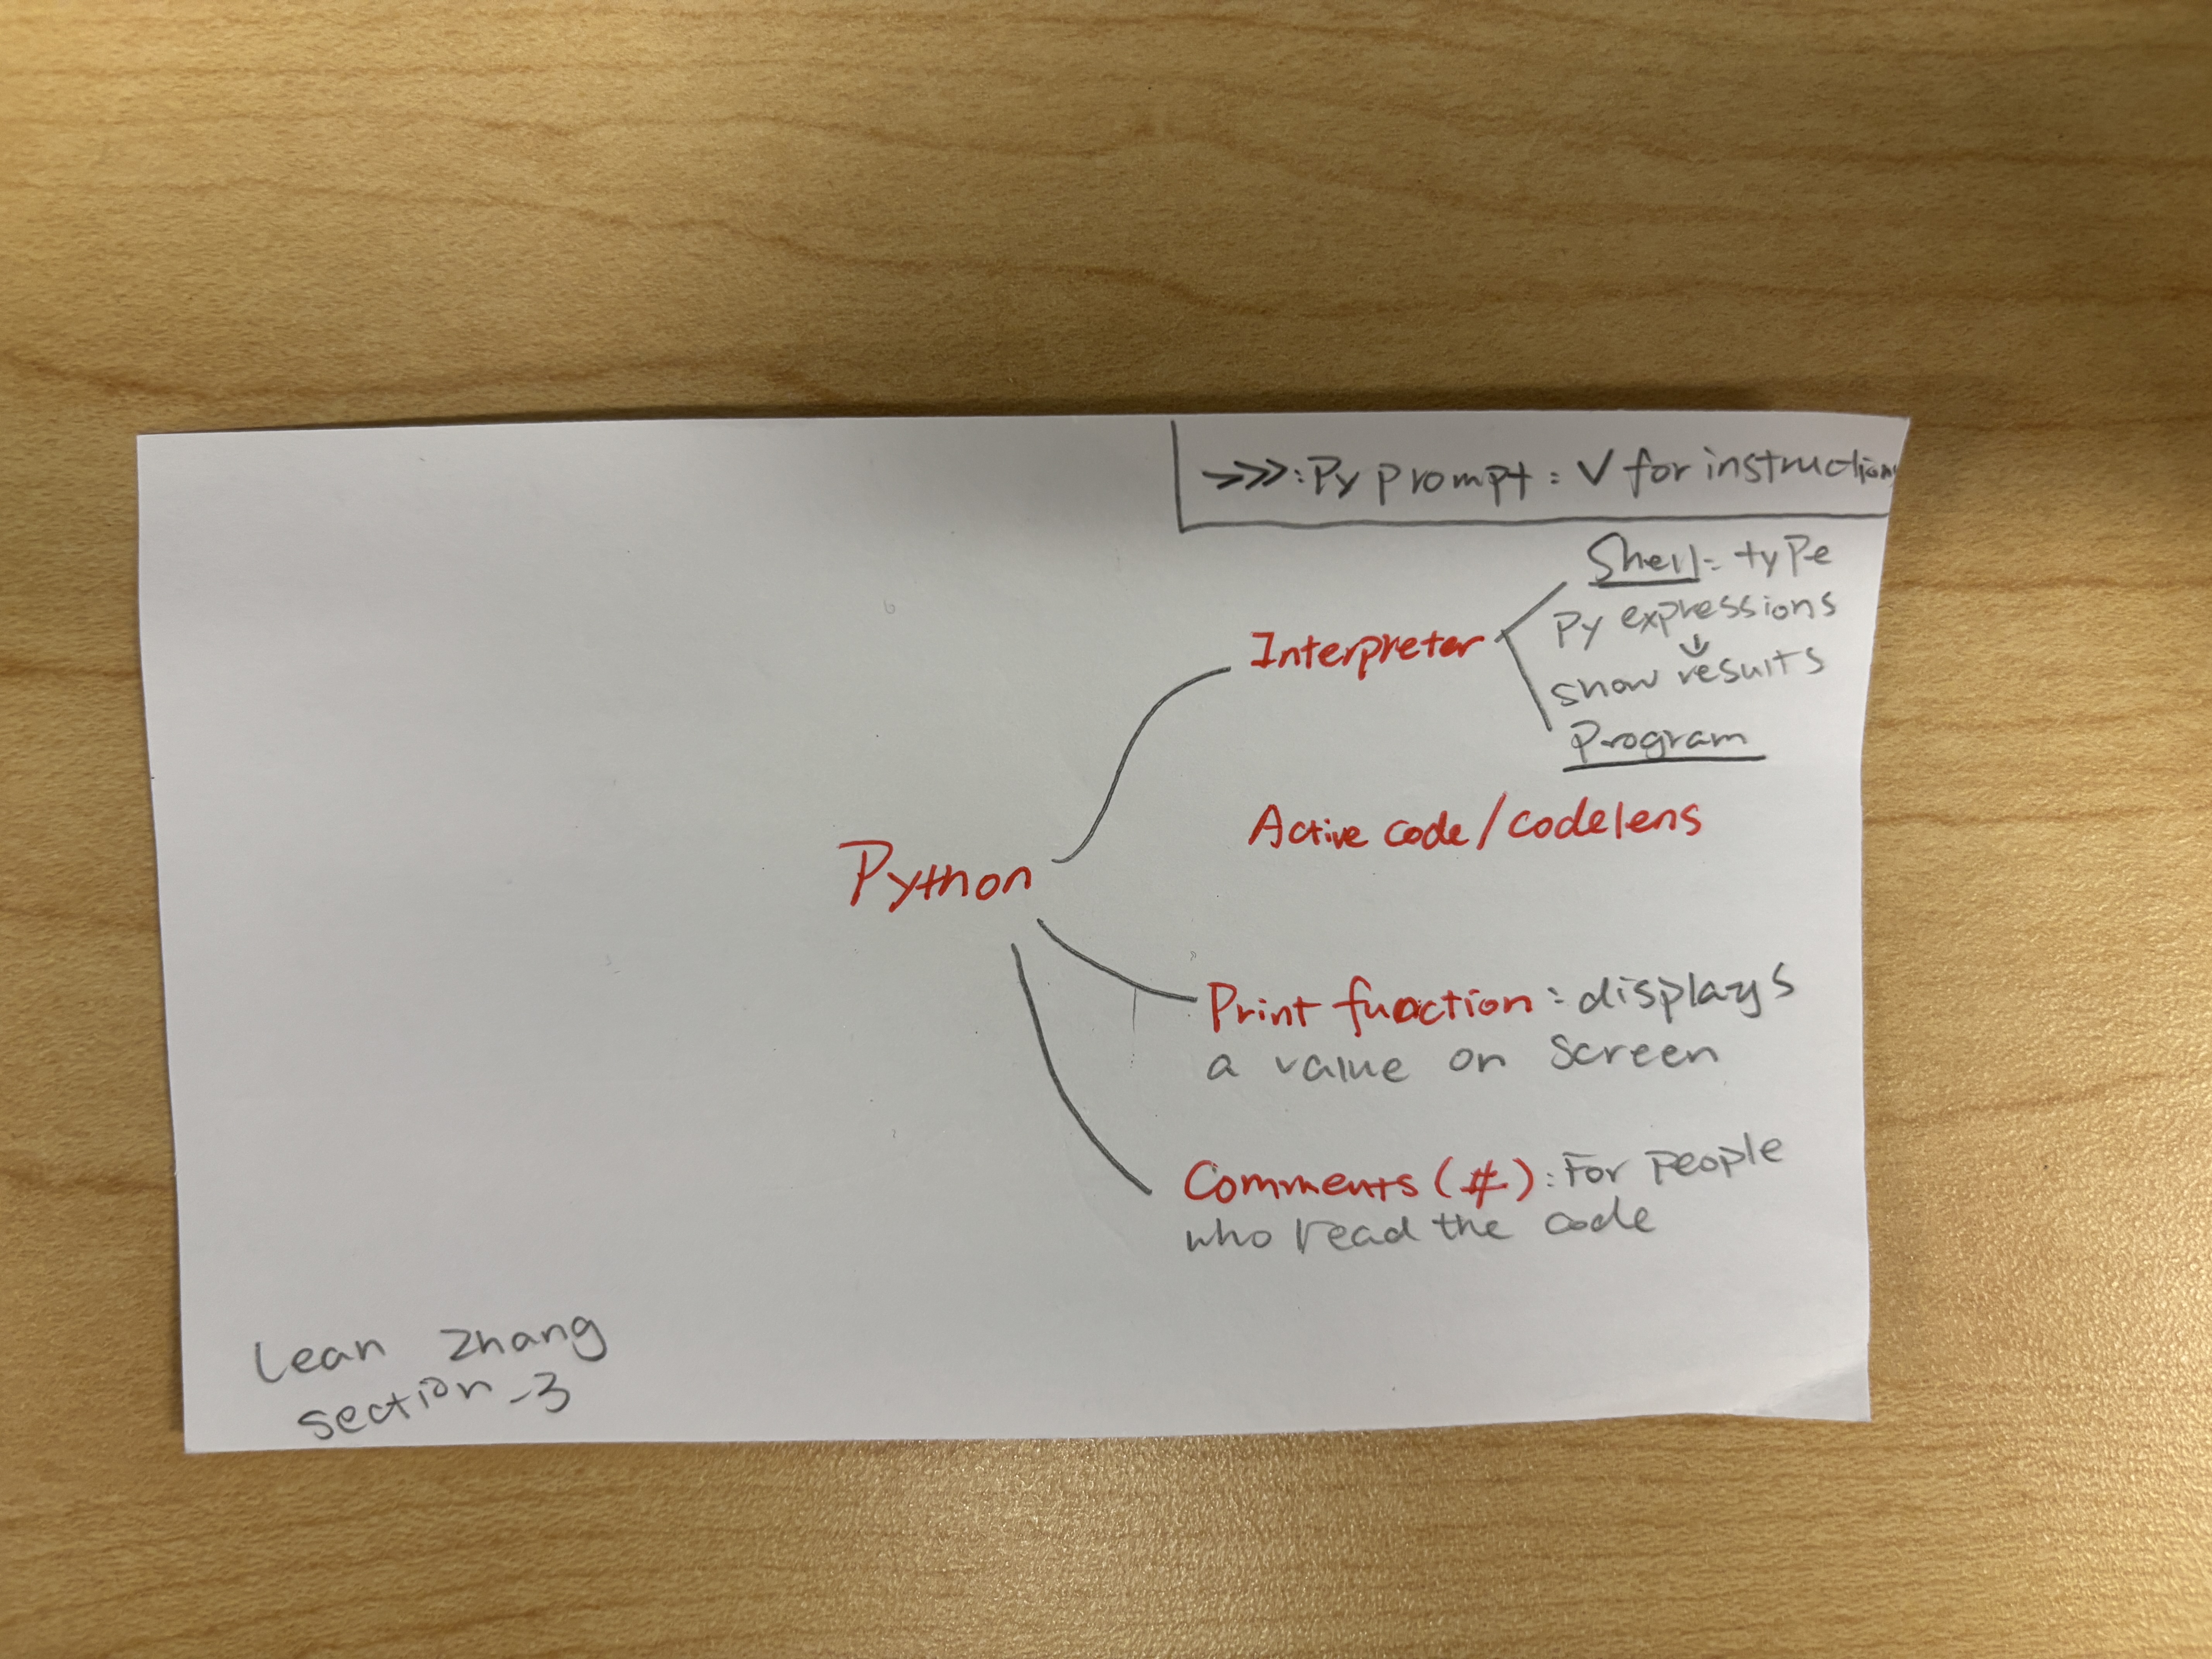 >>>: Py prompt: √ for instructions
Shell: type
Py expressions
↓
show results
Interpreter
Program
Active code/codelens
Python
Print function: displays
a value on screen
Comments (#): For people
who read the code
Lean Zhang
section-3